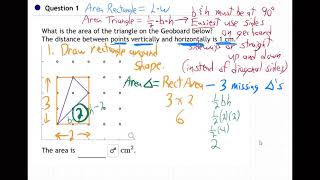 Question 1
Area Rectangle = L·W
Area Triangle = 1/2·b·h
b & h must be at 90°
Easiest use sides
on geoboard
sideways or straight
up and down
(instead of diagonal sides)
What is the area of the triangle on the Geoboard below?
The distance between points vertically and horizontally is 1 cm.
1. Draw rectangle around
shape.
Area Δ = Rect Area - 3 missing Δ's
3 × 2
6
1/2 bh
1/2 (2)(2)
1/2 (4)
2
3
2
2
The area is
cm².